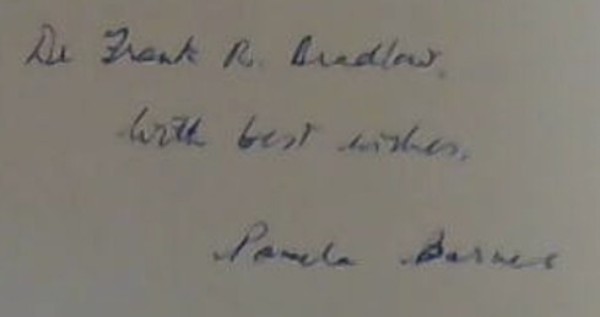 Dr Frank R. Bradlow,
with best wishes,
Pamela Barnes